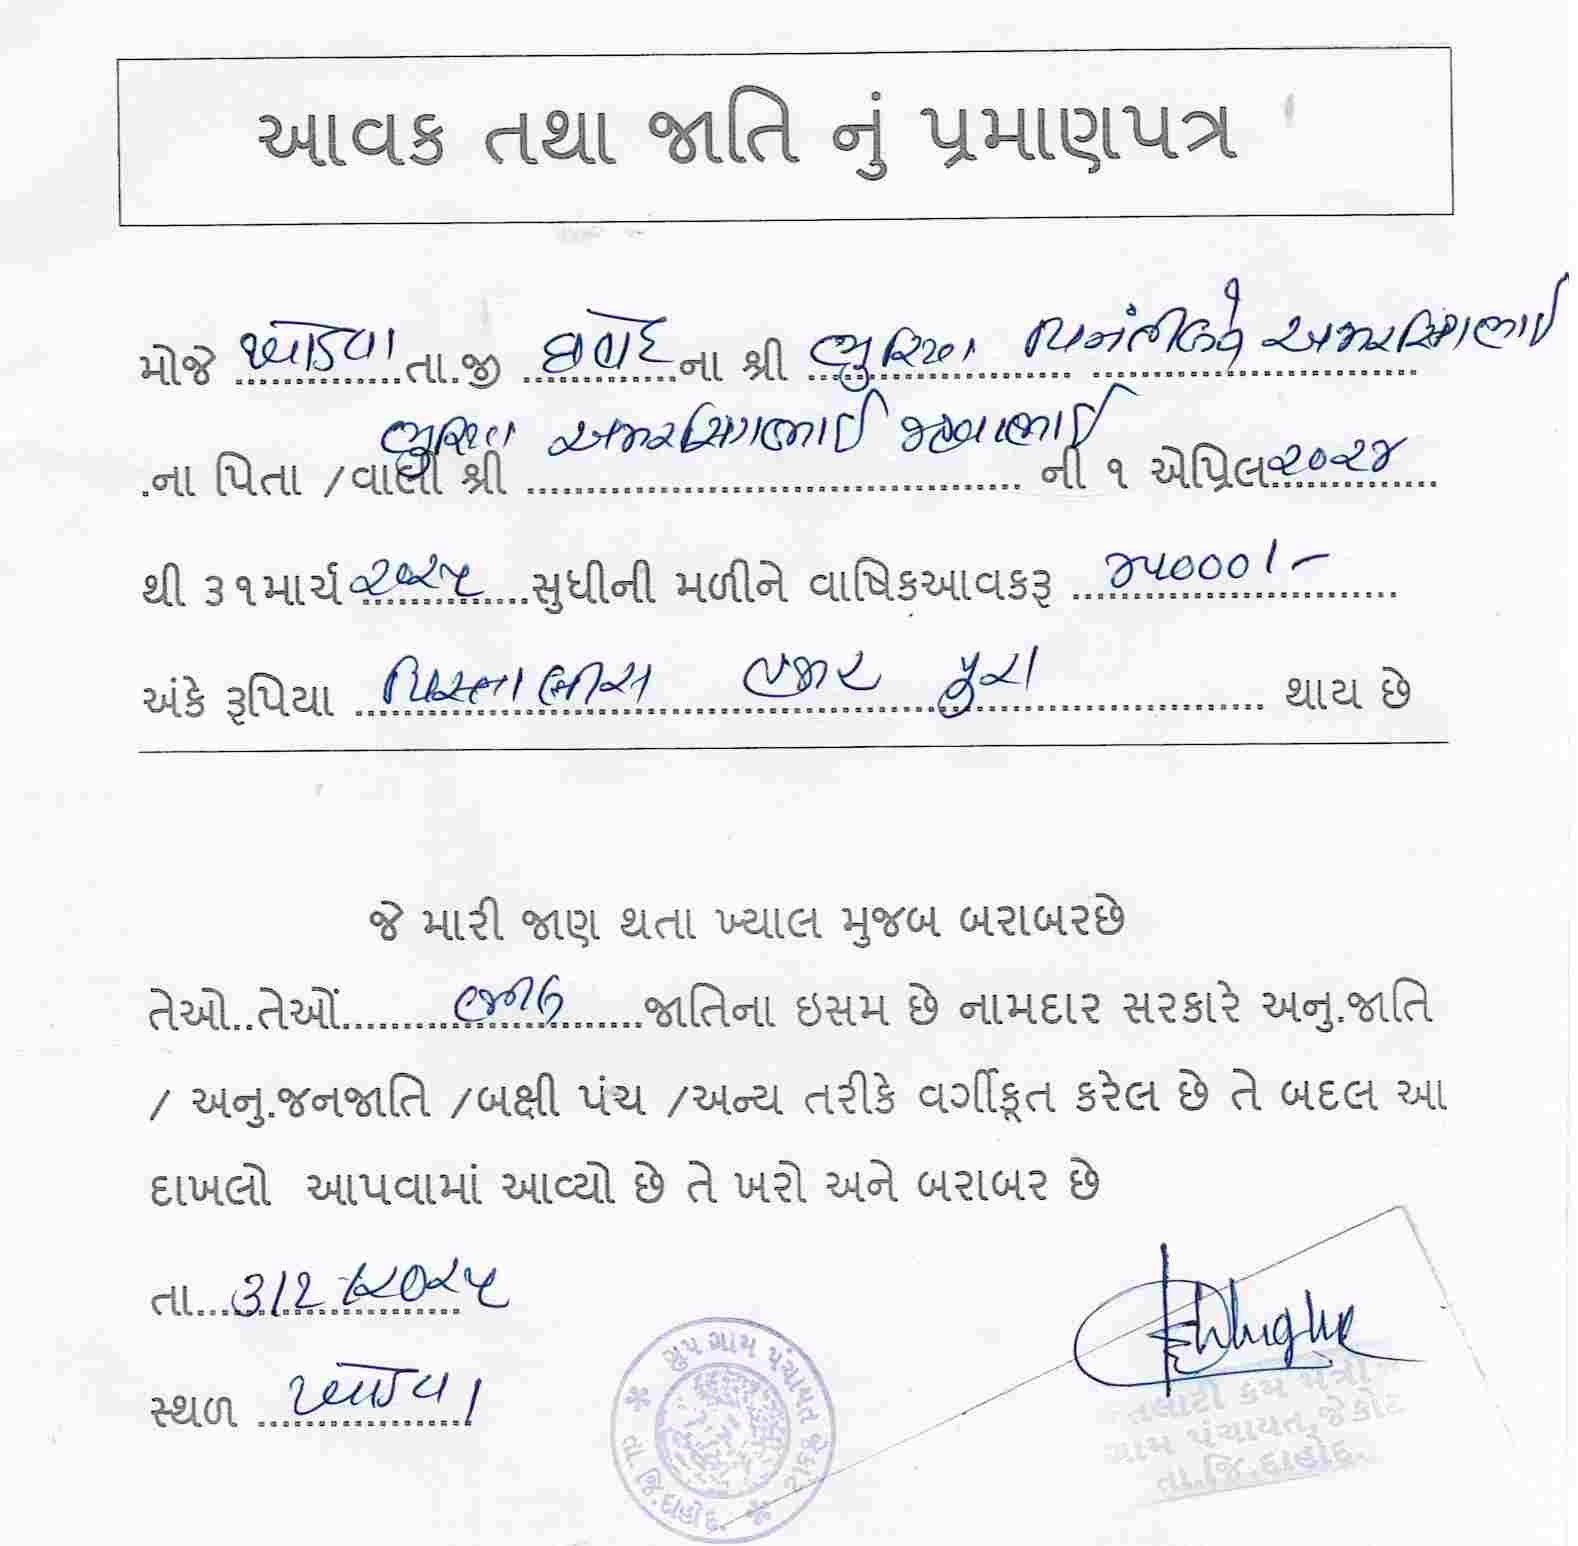 આવક તથા જાતિ નું પ્રમાણપત્ર
મોજે ખોડવા તા.જી દાહોદ ના શ્રી ભુરિયા અમરસિંગભાઈ
ભુરિયા અમરસિંગભાઈ
.ના પિતા /વાલી શ્રી ........ ની ૧ એપ્રિલ ૨૦૨૪
થી ૩૧માર્ચ ૨૦૨૫ સુધીની મળીને વાષિકઆવકરૂ ૪૫૦૦૦/-
અંકે રૂપિયા પિસ્તાલીસ હજાર પુરા થાય છે
જે મારી જાણ થતા ખ્યાલ મુજબ બરાબરછે
તેઓ..તેઓં........ જાતિના ઇસમ છે નામદાર સરકારે અનુ.જાતિ
/ અનુ.જનજાતિ /બક્ષી પંચ /અન્ય તરીકે વર્ગીકૂત કરેલ છે તે બદલ આ
દાખલો આપવામાં આવ્યો છે તે ખરો અને બરાબર છે
તા... ૩/૨/૨૦૨૫
સ્થળ
ગૃપ ગ્રામ પંચાયત જેકોટ
તા.જિ.દાહોદ.
તલાટી કમ મંત્રી
ગ્રામ પંચાયત, જેકોટ
તા.જિ.દાહોદ.